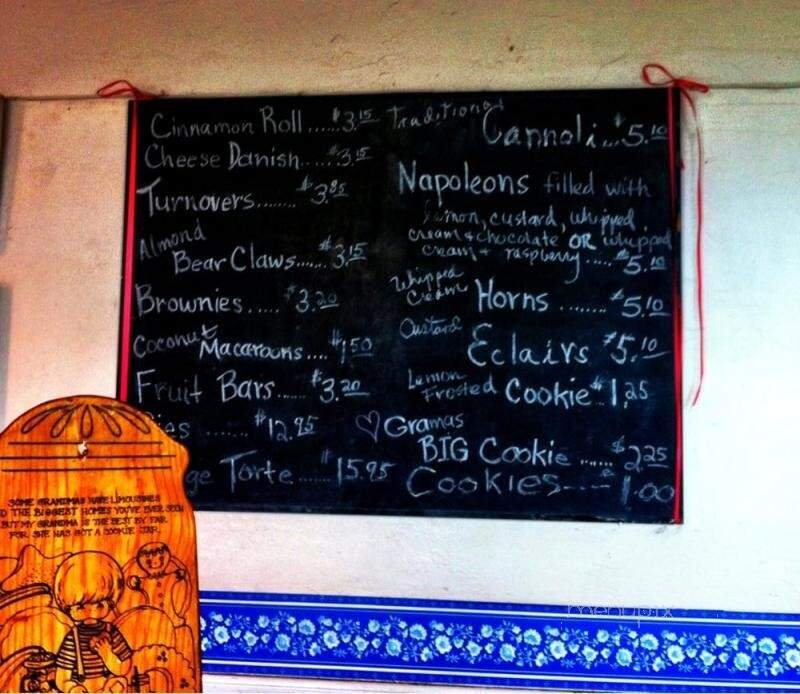 Cinnamon Roll ...... $3.15
Cheese Danish ...... $3.15
Turnovers ........ $3.85
Almond
Bear Claws ...... $3.15
Brownies ..... $3.20
Coconut
Macaroons .... $1.50
Fruit Bars ...... $3.20
ies ....... $12.95
ge Torte ...... 15.95
Traditional
Cannoli ... $5.10
Napoleons filled with
lemon, custard, whipped
cream + chocolate OR whipped
cream + raspberry ..... $5.10
Whipped
Cream Horns ........ $5.10
Custard
Eclairs $5.10
Lemon
Frosted Cookie $1.25
Gramas
BIG Cookie ...... $2.25
Cookies ---- 1.00
SOME GRANDMAS HAVE LIMOUSINES
D THE BIGGEST HOMES YOU'VE EVER SEEN
BUT MY GRANDMA IS THE BEST BY FAR
FOR SHE HAS GOT A COOKIE JAR.
menupix